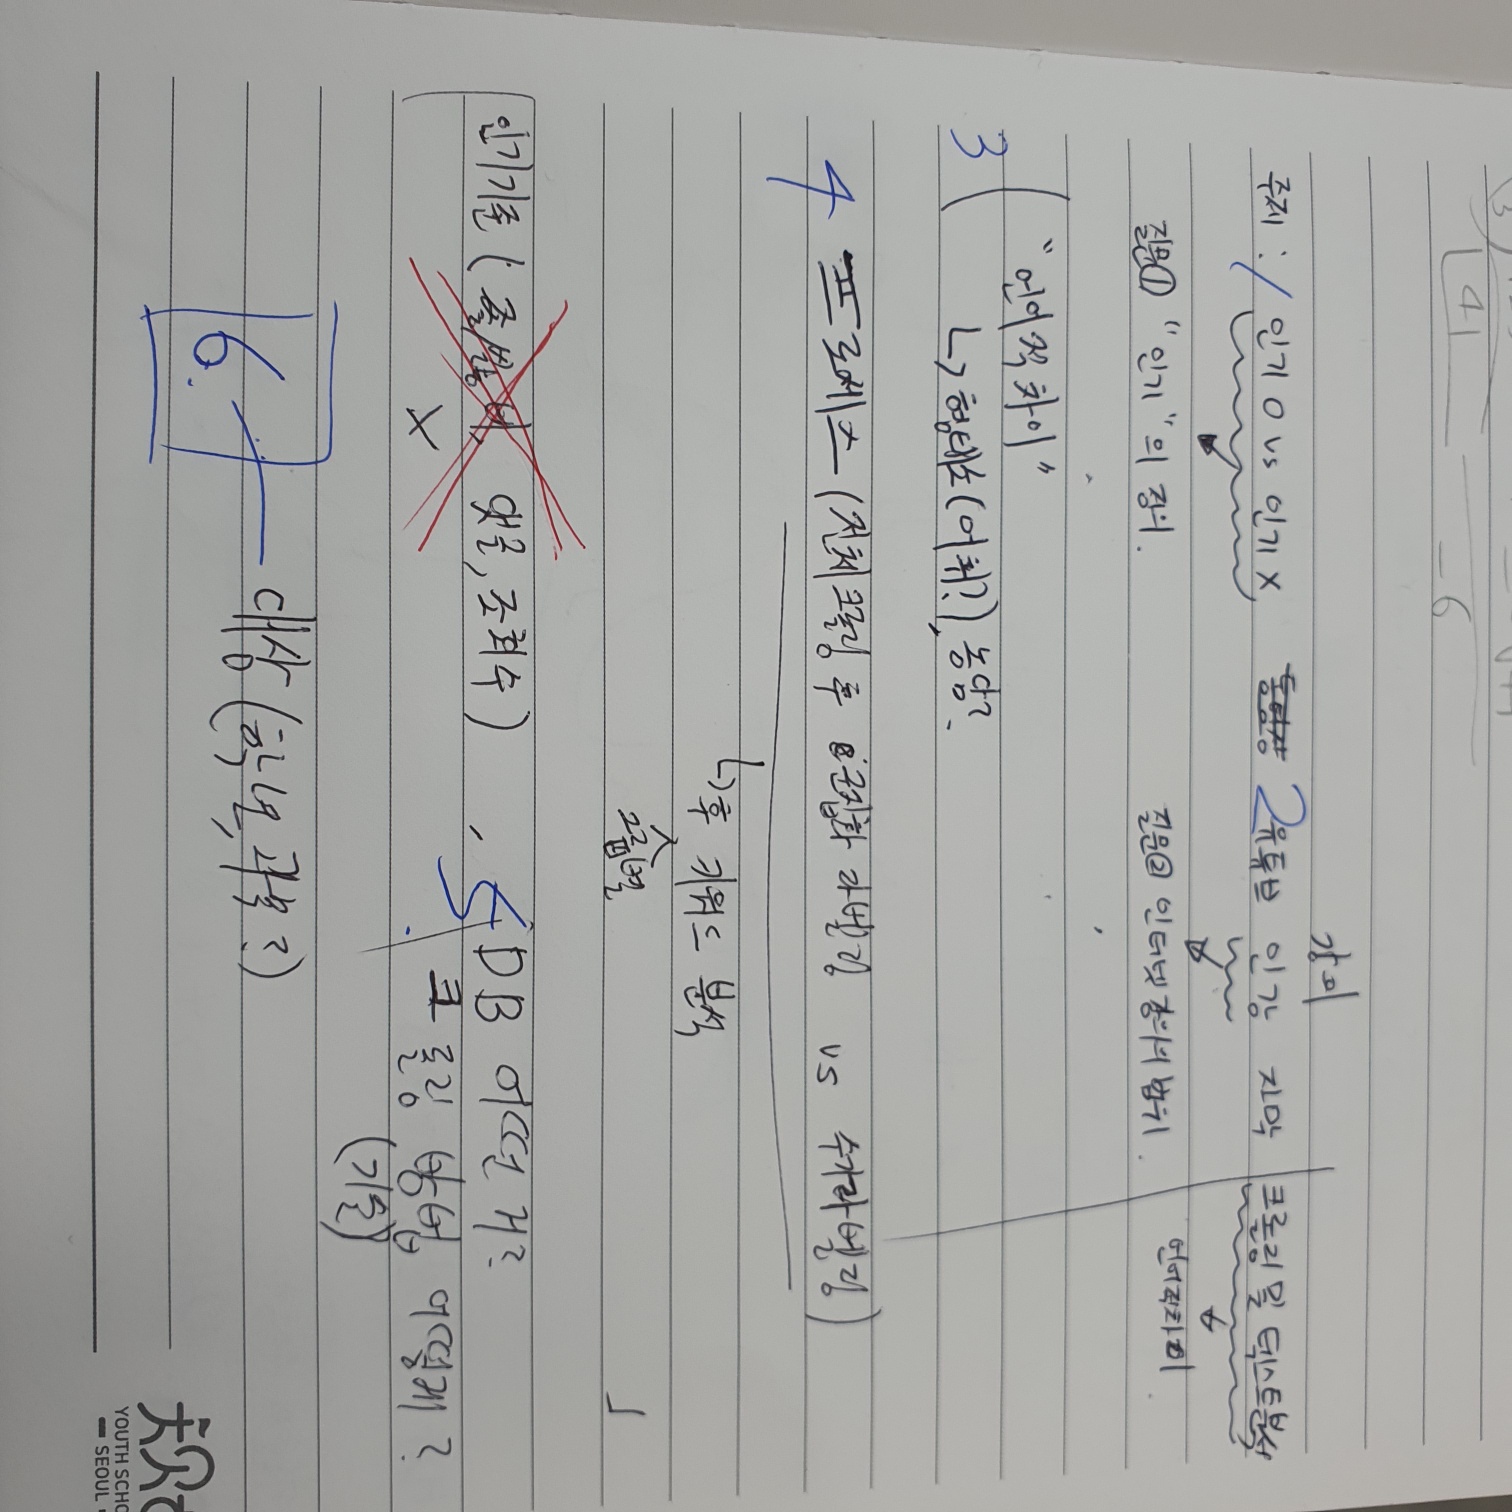 3
4
- 6
강의
주제 : 1 인기 O vs 인기 X 2 유튜브 인강 자막 크롤링 및 텍스트분석
질문① "인기"의 정의. 질문② 인터넷강의의 범위. 언어적차이.
"언어적 차이"
3 ↳ 형태소(어휘?), 농담?
4 프로세스 (전체크롤링 후 군집화 라벨링 vs 수기라벨링)
↳ 후 키워드 분석
그룹별
인기기준 ( 댓글, 조회수 ) , 5 DB 어떤 거?
X 크롤링 방법 어떻게?
(기술)
6. 대상 (학년, 과목?)
YOUTH SCHO
SEOUL